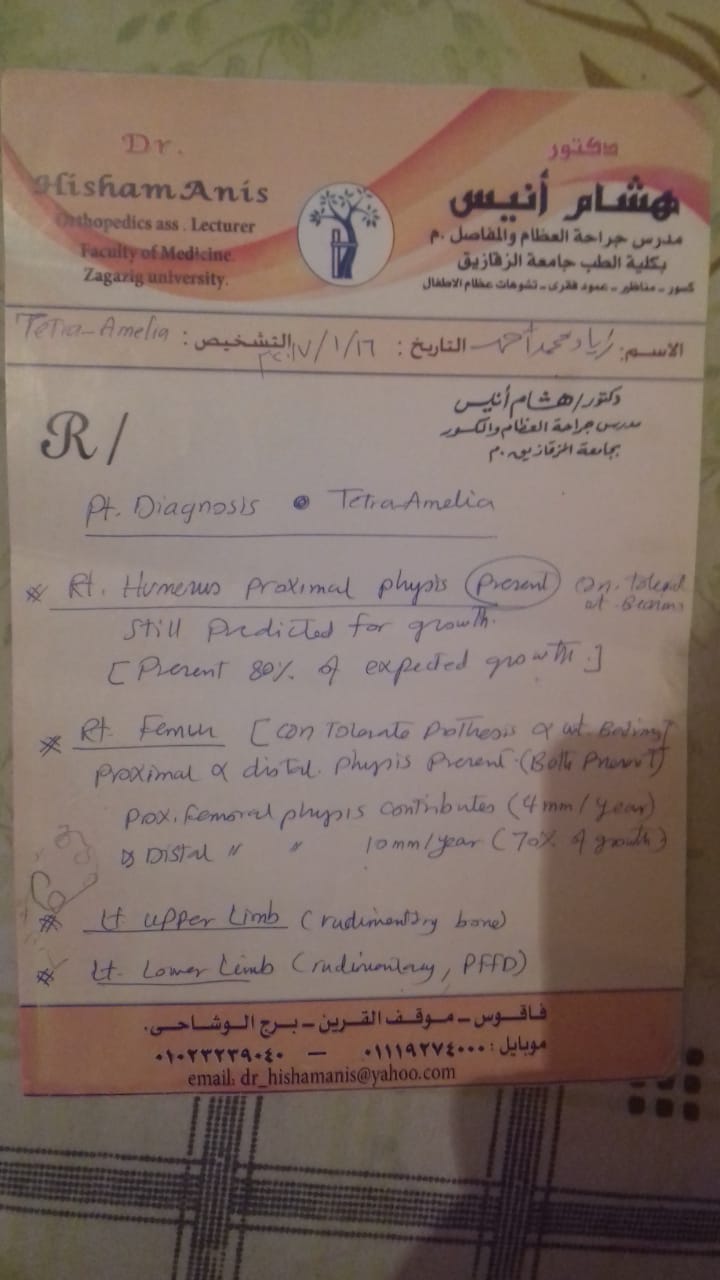 Dr.
Hisham Anis
Orthopedics ass . Lecturer
Faculty of Medicine.
Zagazig university.
دكتور
هشام أنيس
مدرس جراحة العظام والمفاصل .م
بكلية الطب جامعة الزقازيق
كسور - مناظير - عمود فقرى - تشوهات عظام الاطفال
الاسم: زياد محمد أحمد التاريخ : ٢٠١٧/١/١٦ التشخيص : Tetra-Amelia
R/
دكتور/هشام أنيس
مدرس جراحة العظام والكسور
بجامعة الزقازيق .م
Pt. Diagnosis Tetra-Amelia
* Rt. Humerus proximal physis (Present) can tolerate
wt. Bearing
Still Predicted for growth.
[Present 80% of expected growth.]
* Rt. Femur [can Tolerate Prothesis & wt. Bearing]
proximal & distal. physis Present. (Both Present)
prox. femoral physis contributes (4mm/year)
Distal " " 10mm/year (70% of growth)
* Lt upper Limb (rudimentary bone)
* Lt. Lower Limb (rudimentary, PFFD)
فاقوس - موقف القرين - برج الوشاحى.
موبايل : ٠١١١٩٢٧٤٠٠٠ - ٠١٠٢٣٢٣٩٠٤٠
email: dr_hishamanis@yahoo.com